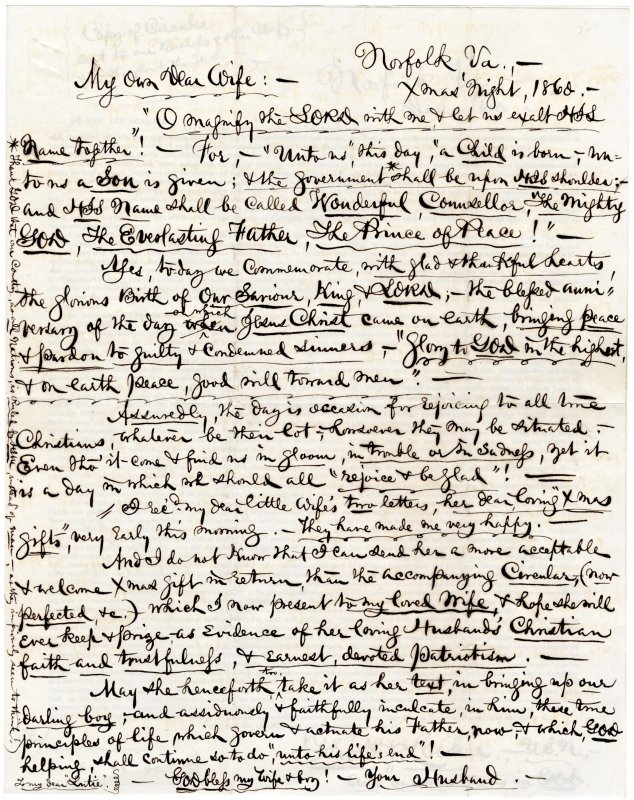 Copy of Circular
Norfolk Va., —
My Own Dear Wife: —
Xmas Night, 1860. —
"O magnify the LORD with me, & let us exalt HIS
Name together"! — For, — "Unto us", this day, "a Child is born, — un-
to us a Son is given; & the government * shall be upon HIS shoulder; —
and HIS Name shall be called Wonderful, Counsellor, The Mighty
GOD, The Everlasting Father, The Prince of Peace!" —
Yes, today we commemorate, with glad & thankful hearts,
the glorious Birth of Our Saviour, King, & LORD; — the blessed anni-
versary of the day on which Jesus Christ came on earth, bringing peace
& pardon to guilty & condemned sinners, — "Glory to GOD in the highest,
& on earth peace, good will toward men". —
Assuredly, the day is occasion for rejoicing to all true
Christians, whatever be their lot, — howsoever they may be situated. —
Even tho' it come & find us in gloom, in trouble or in sadness, yet it
is a day in which we should all "rejoice & be glad"! —
I rec'd. my dear little Wife's two letters, her dear, loving "Xmas
gifts", very early this morning. — They have made me very happy. —
And I do not know that I can send her a more acceptable
& welcome Xmas gift in return, than the accompanying Circular, (now
perfected, &c.) which I now present to my loved Wife, & hope she will
ever keep & prize as Evidence of her loving Husband's Christian
faith and trustfulness, & Earnest, devoted Patriotism. —
May she henceforth, too, take it as her text, in bringing up our
darling boy, and assiduously & faithfully inculcate, in him, these true
principles of life which govern & actuate his Father, now, & which, GOD
helping, shall continue so to do, "unto his life's end"! —
GOD bless my Wife & boy! — Your Husband. —
To my dear "Lutie".